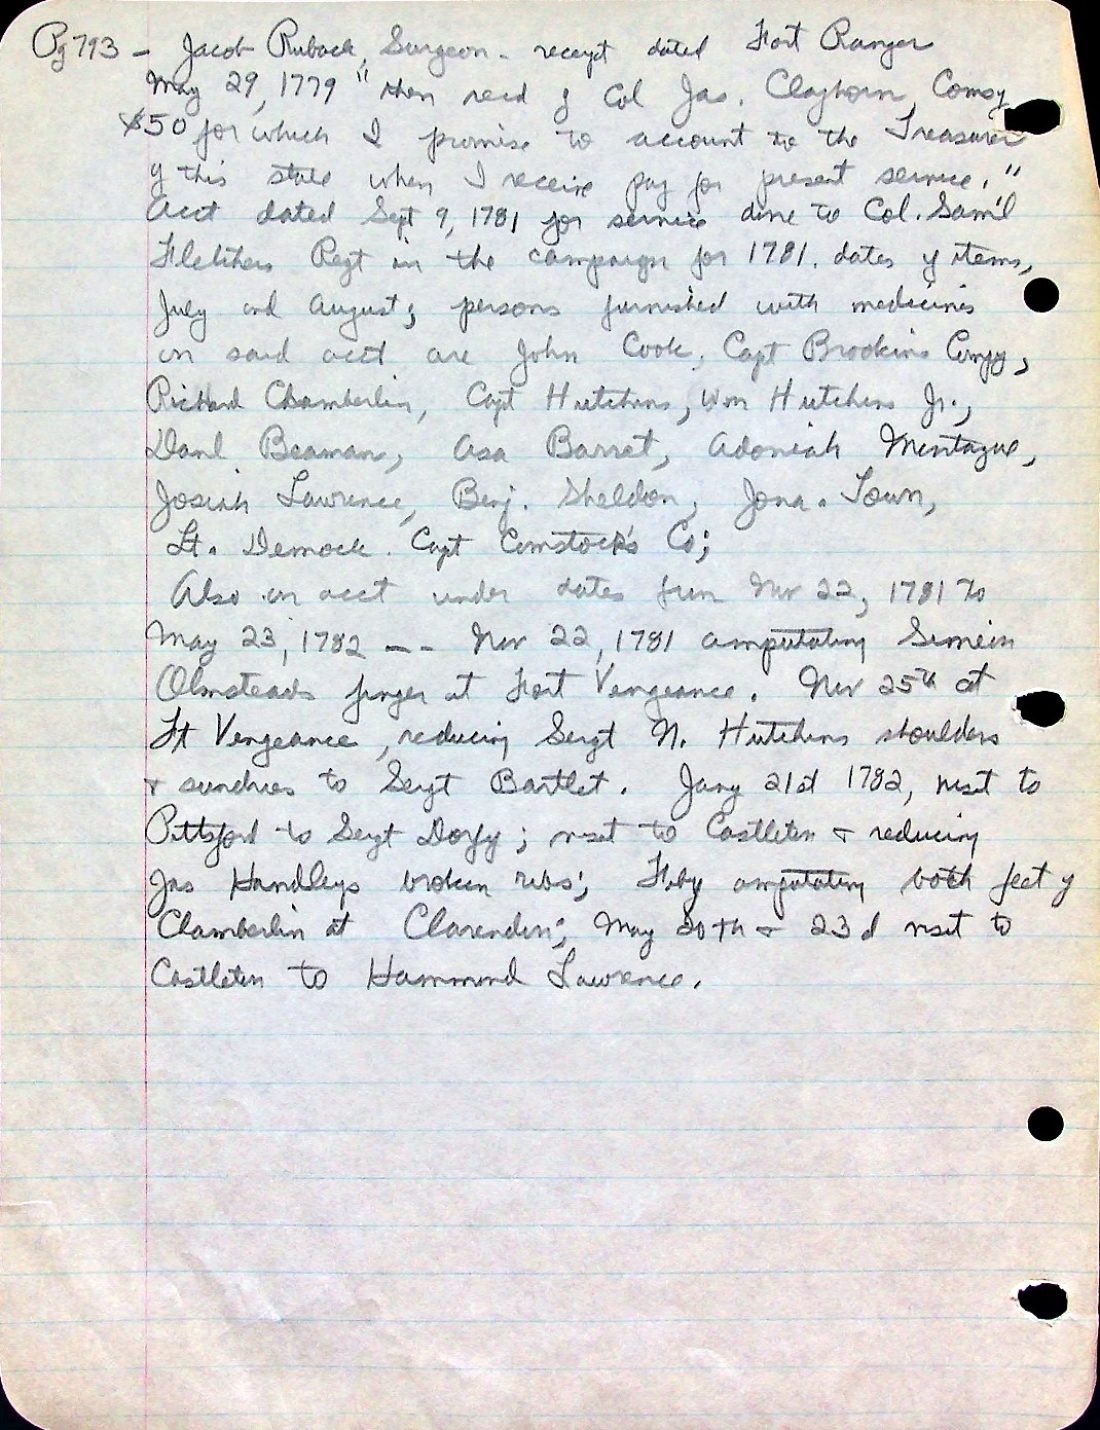 Pg 793 - Jacob Ruback, Surgeon - receipt dated Fort Ranger
May 29, 1779 "then recd of Col Jas. Clayhorn, Comsy
$50 for which I promise to account to the Treasurer
of this state when I receive pay for present service."
Acct dated Sept 9, 1781 for service done to Col. Sam'l
Fletchers Regt in the campaign for 1781. dates of items,
July and August; persons furnished with medicines
in said acct are John Cook, Capt Brookins Compy,
Richard Chamberlin, Capt Hutchins, Wm Hutchins Jr.,
Danl Beaman, Asa Barret, Adoniah Montague,
Josiah Lawrence, Benj. Sheldon, Jona. Town,
Lt. Demock. Capt Comstock's Co;
Also in acct under dates from Nov 22, 1781 to
May 23, 1782 -- Nov 22, 1781 amputating Simein
Olmsteads finger at Fort Vengeance. Nov 25th at
Ft Vengeance, reducing Sergt N. Hutchins shoulders
& sundries to Sergt Bartlet. Jany 21st 1782, visit to
Pittsford to Sergt Dorfy; visit to Castleten & reducing
Jas Handleys broken ribs; Feby amputating both feet of
Chamberlin at Clarendon; May 20th & 23d visit to
Castleten to Hammond Lawrence.